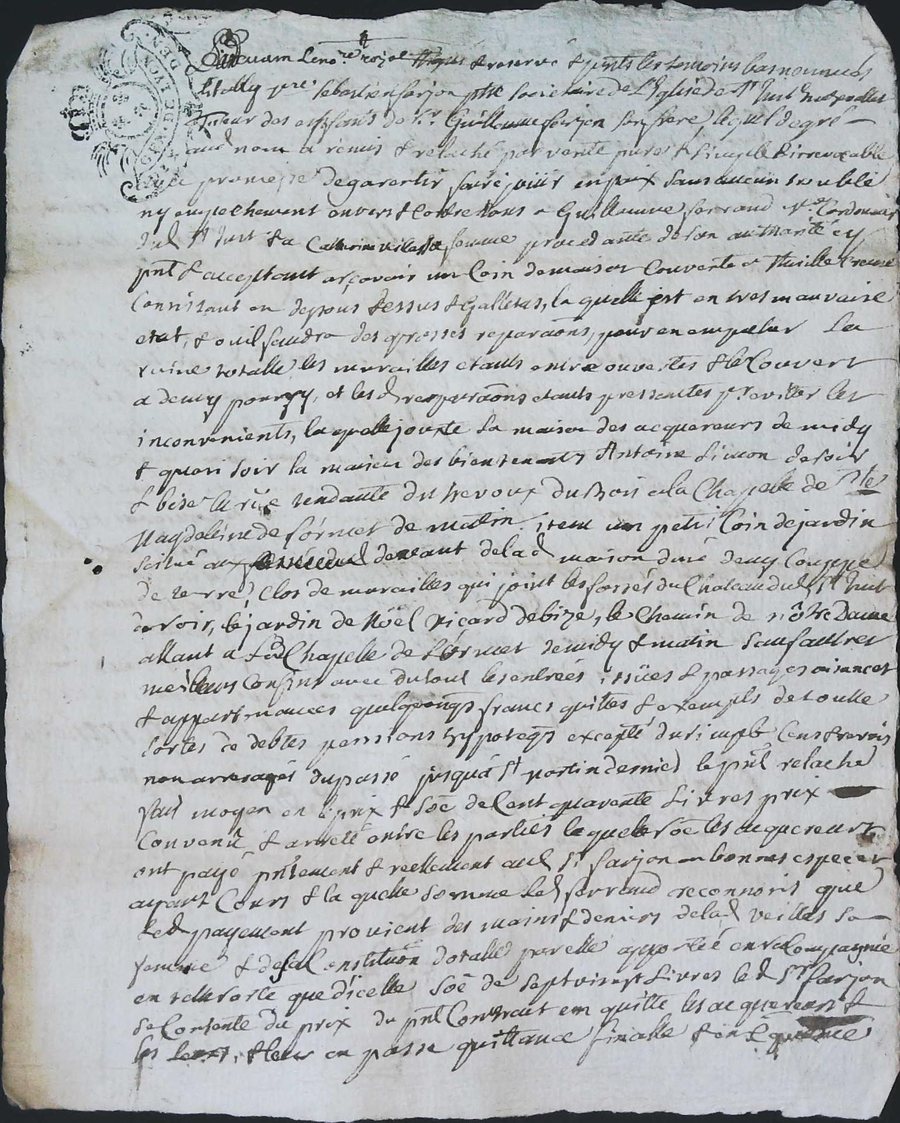 GEN. DE LYON
DEN.
Pardevant Le no.re royal & reservé & pnts les temoins bas nommés
Estably Mre Sebastien farjon ptre Societaire de L'Eglise de St Just
Tuteur des enfans de Sr Guillaume farjon son frere, lequel de gré
aud nom a remis & relaché par vente pure & simple & irrevocable
avec promesse de garentir faire jouir en paix sans aucun trouble
ny empechement envers & contre tous a Guillaume ferrand Me Cordonnier
dud St Just & a Catherine veillas sa femme procedante de son authorité cy
pnt & acceptant asçavoir un Coin de maison Couverte a thuille Creuse
Consistant en dessous dessus & galletas, la quelle est en tres mauvaise
etat, & ou il faudra des grosses reparaõns, pour en empecher La
ruine totalle, les murailles etants entre ouvertes & le Couvert
a demy pourry, et lesd reparaõns etants pressantes pr eviter les
inconvenients, la quelle jouxte la maison des acquereurs de midy
& quasi soir la maison des bientenants Antoine Simon de soir
& bise la rüe tendante du a la Chapelle de Ste
Magdeleine de l'ormet de matin. item un petit Coin de jardin
scitué au devant de lad maison d'une demy Couppée
de terre Clos de murailles qui joint les fossés du Chateau dud St Just
de soir, le jardin de Noël ricard de bize, le Chemin de nôtre Dame
allant a lad Chapelle de l'ormet de midy & matin sauf autres
meilleurs Confins avec du tout les entrées, issües & passages aisances
& appartenances quelqonqs francs quittes & exempts de toutte
sortes de debtes pensions hypoteqs excepté du simple Cens & servis
non arreragés du passé jusquà St martin dernier le pnt relache
fait moyen en le prix & Soe de Cent quarente Livres prix
Convenu & arreté entre les parties la quelle soe les acquereurs
ont payé pntement & reellement aud Sr farjon en bonnes especes
ayant Cours & la quelle somme led ferrand reconnois que
led payement provient des mains & deniers de lad veillas sa
femme & de sa Constituõn dotalle par elle apportée en sa Compagnie
en telle sorte que d'icelle Soe de Sept vingt Livres led Sr farjon
se Contente du prix du pnt Contrait en quitte les acquereurs &
les leurs, & leur en passe quittance finalle & en Consequence